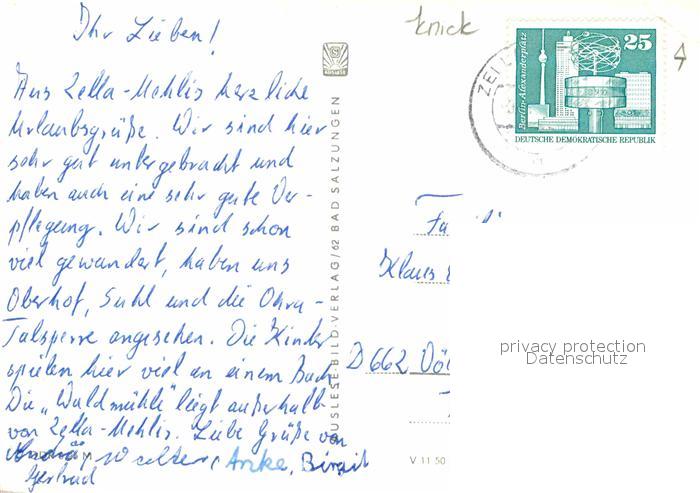 Ihr Lieben!
Aus Zella-Mehlis herzliche
Urlaubsgrüße. Wir sind hier
sehr gut untergebracht und
haben auch eine sehr gute Ver-
pflegung. Wir sind schon
viel gewandert, haben uns
Oberhof, Suhl und die Ohra-
Talsperre angesehen. Die Kinder
spielen hier viel an einem Bach.
Die „Waldmühle" liegt außerhalb
von Zella-Mehlis. Liebe Grüße von
Anke, Birgit
Gertrud
AUSLESE BILDVERLAG/62 BAD SALZUNGEN
V 11 50
knick
ZELL
Berlin-Alexanderplatz
25
DEUTSCHE DEMOKRATISCHE REPUBLIK
Fa
Klaus
D 662
privacy protection
Datenschutz